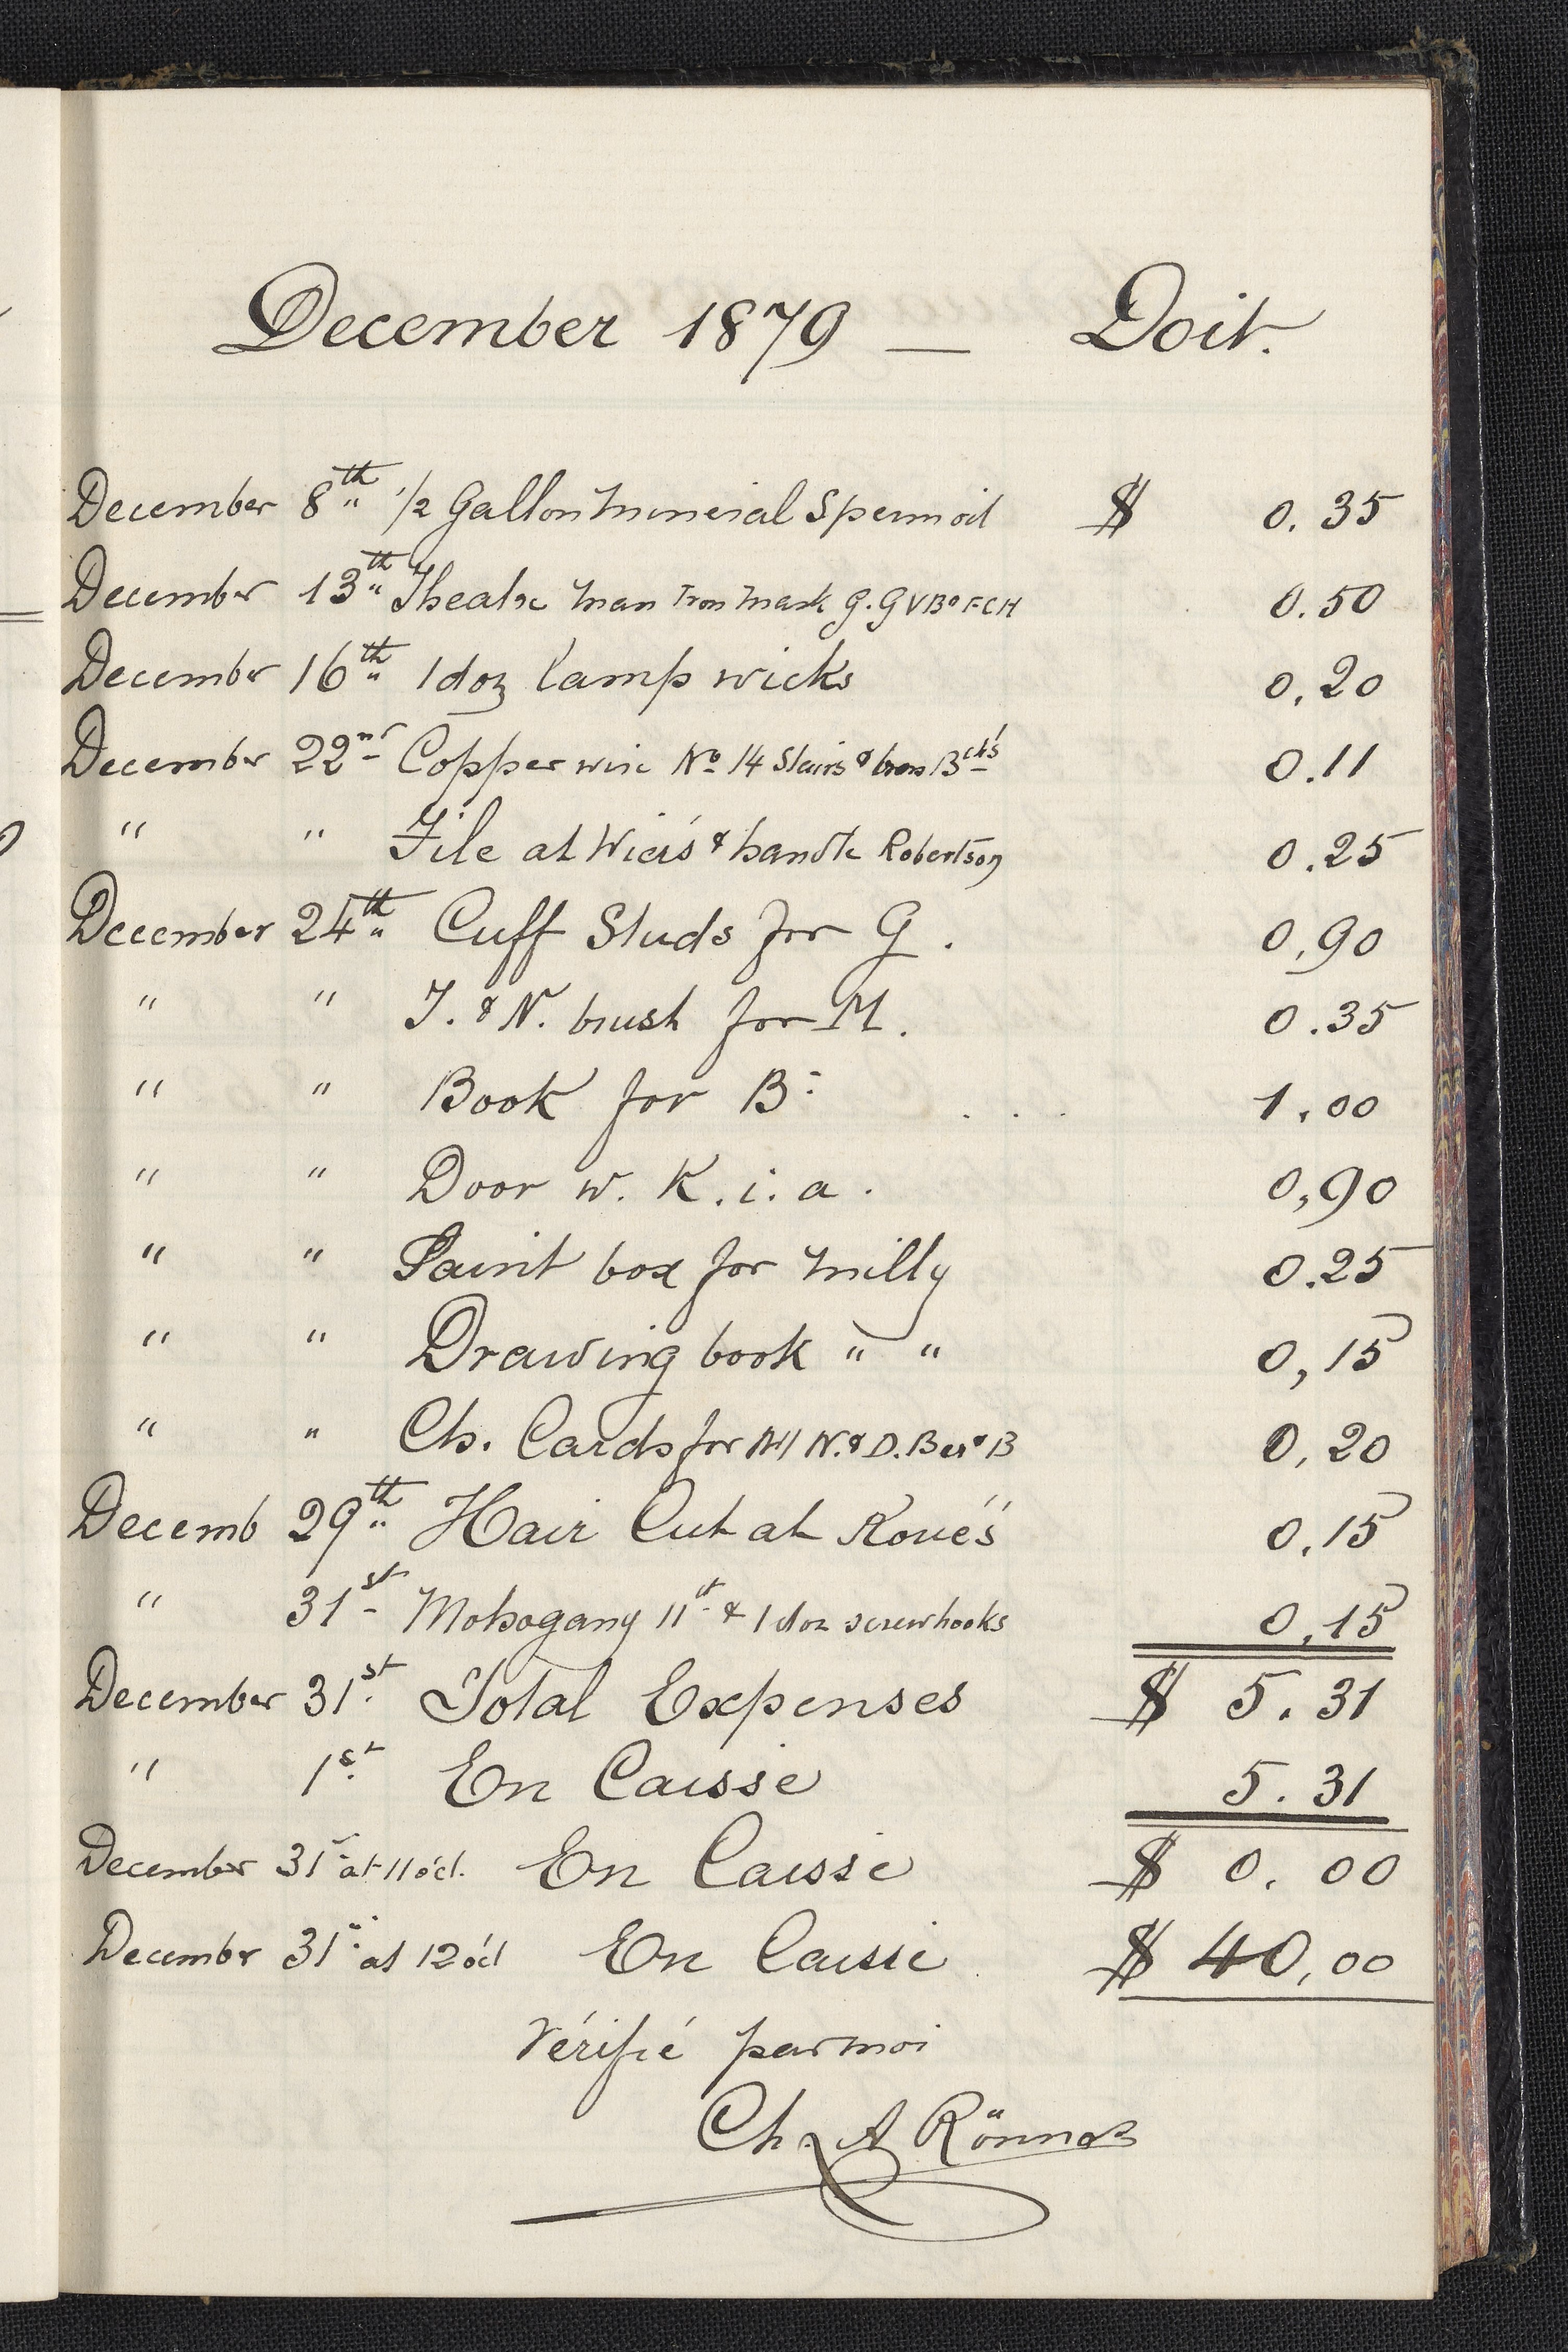 December 1879 — Doit.
December 8th 1/2 Gallon Mineral Sperm oil $ 0.35
December 13th Theatre Man Iron Mask G. G V Bo FCH 0.50
December 16th 1 doz Lamp wicks 0,20
December 22nd Copper wire No 14 Stairs & brass Bchs 0.11
" " File at Wier's & handle Robertson 0.25
December 24th Cuff Studs for G. 0,90
" " T. & N. brush for M. 0.35
" " Book for B: . . . 1,00
" " Door w. K. i. a. 0,90
" " Paint box for Milly 0.25
" " Drawing book " " 0,15
" " Ch. Cards for M N. & D. B & B 0,20
Decemb 29th Hair Cut at Roue's 0,15
" 31st Mohogany 11ct & 1 doz screwhooks 0,15
December 31st Total Expenses $ 5.31
" 1st En Caisse 5.31
December 31st at 11 o'cl. En Caisse $ 0.00
December 31st at 12 o'cl En Caisse $ 40,00
Vérifié par moi
Ch. A Rönne